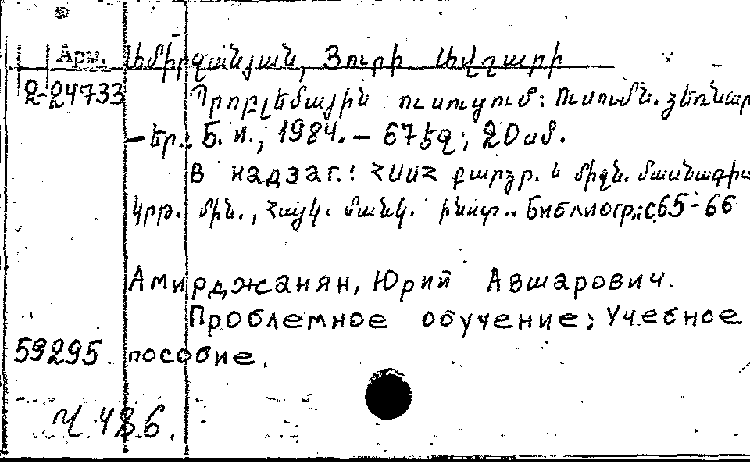 Арм. Ամիրջանյան, Յուրի Ավշարի
2-24733 Պրոբլեմային ուսուցում: Ուսումն. ձեռնար
– Եր.: Б. и., 1984. – 67 էջ; 20 սմ.
В надзаг.: ՀՍՍՀ բարձր. և միջն. մասնագի
կրթ. մին., Հայկ. մանկ. ինստ.. Библиогр.: с. 65-66
Амирджанян, Юрий Авшарович.
Проблемное обучение: Учебное
59295 пособие.
486.